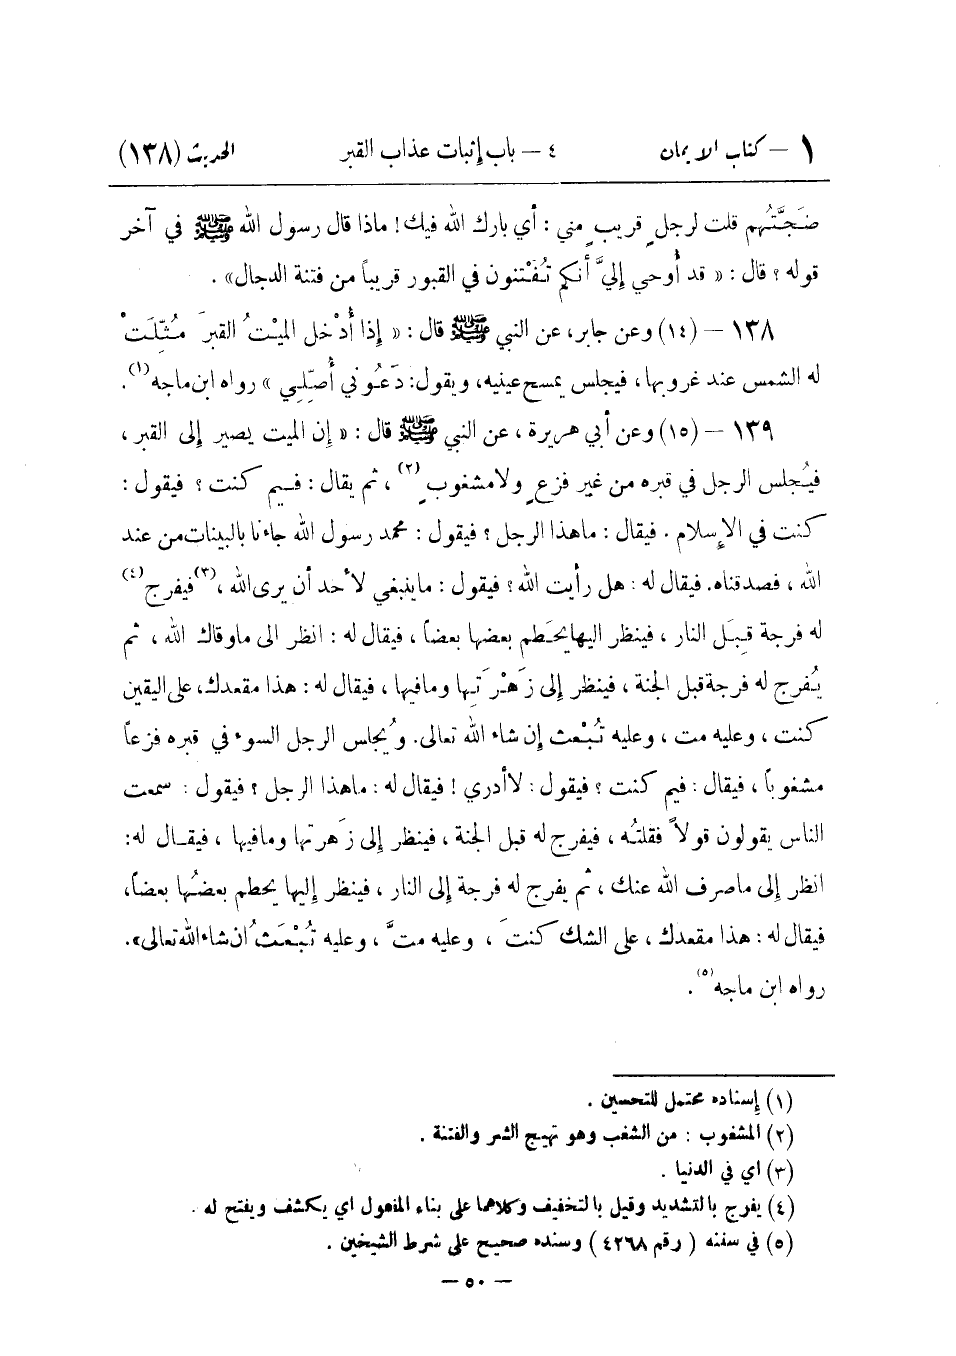 ١ – كتاب الايمان ٤ – باب إثبات عذاب القبر الحديث (١٣٨)
ضَجَّتُهم قلت لرجلٍ قريبٍ مني : أي بارك الله فيك! ماذا قال رسول الله ﷺ في آخر
قوله ؟ قال : « قد أُوحي إليَّ أنكم تُفْتنون في القبور قريباً من فتنة الدجال» .
١٣٨ – (١٤) وعن جابر، عن النبي ﷺ قال : « إذا أُدْخل الميْتُ القبرَ مُثِّلَتْ
له الشمس عند غروبها، فيجلس يمسح عينيه، ويقول: دَعُوني أُصَلِّي » رواه ابن ماجه(١).
١٣٩ – (١٥) وعن أبي هريرة ، عن النبي ﷺ قال : « إن الميت يصير إلى القبر ،
فيُجلس الرجل في قبره من غير فزعٍ ولا مشغوبٍ(٢) ، ثم يقال : فيم كنت ؟ فيقول :
كنت في الإسلام . فيقال : ماهذا الرجل ؟ فيقول : محمد رسول الله جاءنا بالبينات من عند
الله ، فصدقناه. فيقال له : هل رأيت الله ؟ فيقول : ماينبغي لأحد أن يرى الله ،(٣) فيفرج(٤)
له فرجة قِبَل النار ، فينظر اليها يحَطم بعضها بعضاً ، فيقال له : انظر الى ماوقاك الله ، ثم
يُفرج له فرجة قبل الجنة ، فينظر إلى زَهْرَتها ومافيها ، فيقال له : هذا مقعدك، على اليقين
كنت ، وعليه مت ، وعليه تُبْعث إن شاء الله تعالى. ويُجلس الرجل السوء في قبره فزعاً
مشغوباً ، فيقال : فيم كنت ؟ فيقول : لاأدري ! فيقال له : ماهذا الرجل ؟ فيقول : سمعت
الناس يقولون قولاً فقلتُه ، فيفرج له قبل الجنة ، فينظر إلى زَهرتها ومافيها ، فيقال له:
انظر إلى ماصرف الله عنك ، ثم يفرج له فرجة إلى النار ، فينظر إليها يحطم بعضُها بعضاً،
فيقال له : هذا مقعدك ، على الشك كنتَ ، وعليه متَّ ، وعليه تُبْعَثُ ان شاء الله تعالى».
رواه ابن ماجه(٥).
(١) إسناده محتمل للتحسين .
(٢) المشغوب : من الشغب وهو تهيج الشر والفتنة .
(٣) اي في الدنيا .
(٤) يفرج بالتشديد وقيل بالتخفيف وكلاهما على بناء المفعول اي يكشف ويفتح له .
(٥) في سننه ( رقم ٤٢٦٨ ) وسنده صحيح على شرط الشيخين .
– ٥٠ –